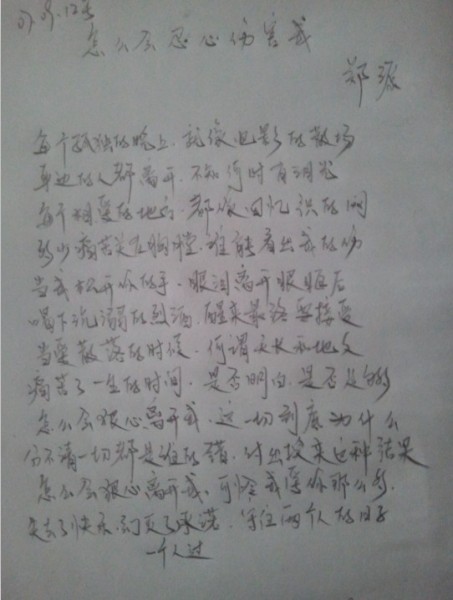 07.9.12号
怎么会忍心伤害我
郑源
每个孤独的晚上.就像电影的散场
身边的人群离开.不知何时有泪光
每个相爱的地方.都像回忆织的网
多少痛苦关在胸膛.谁能看出我的伤
当我松开你的手.眼泪离开眼眶后
喝下沉溺的烈酒.醒来最终要接受
当爱散落的时候.何谓天长和地久
痛苦了一生的时间.是否明白.是否足够
怎么会狠心离开我.这一切到底为什么
分不清一切都是谁的错.付出换来这种结果
怎么会狠心离开我.可怜我爱你那么多.
失去了快乐.了承诺.守住两个人的日子
一个人过